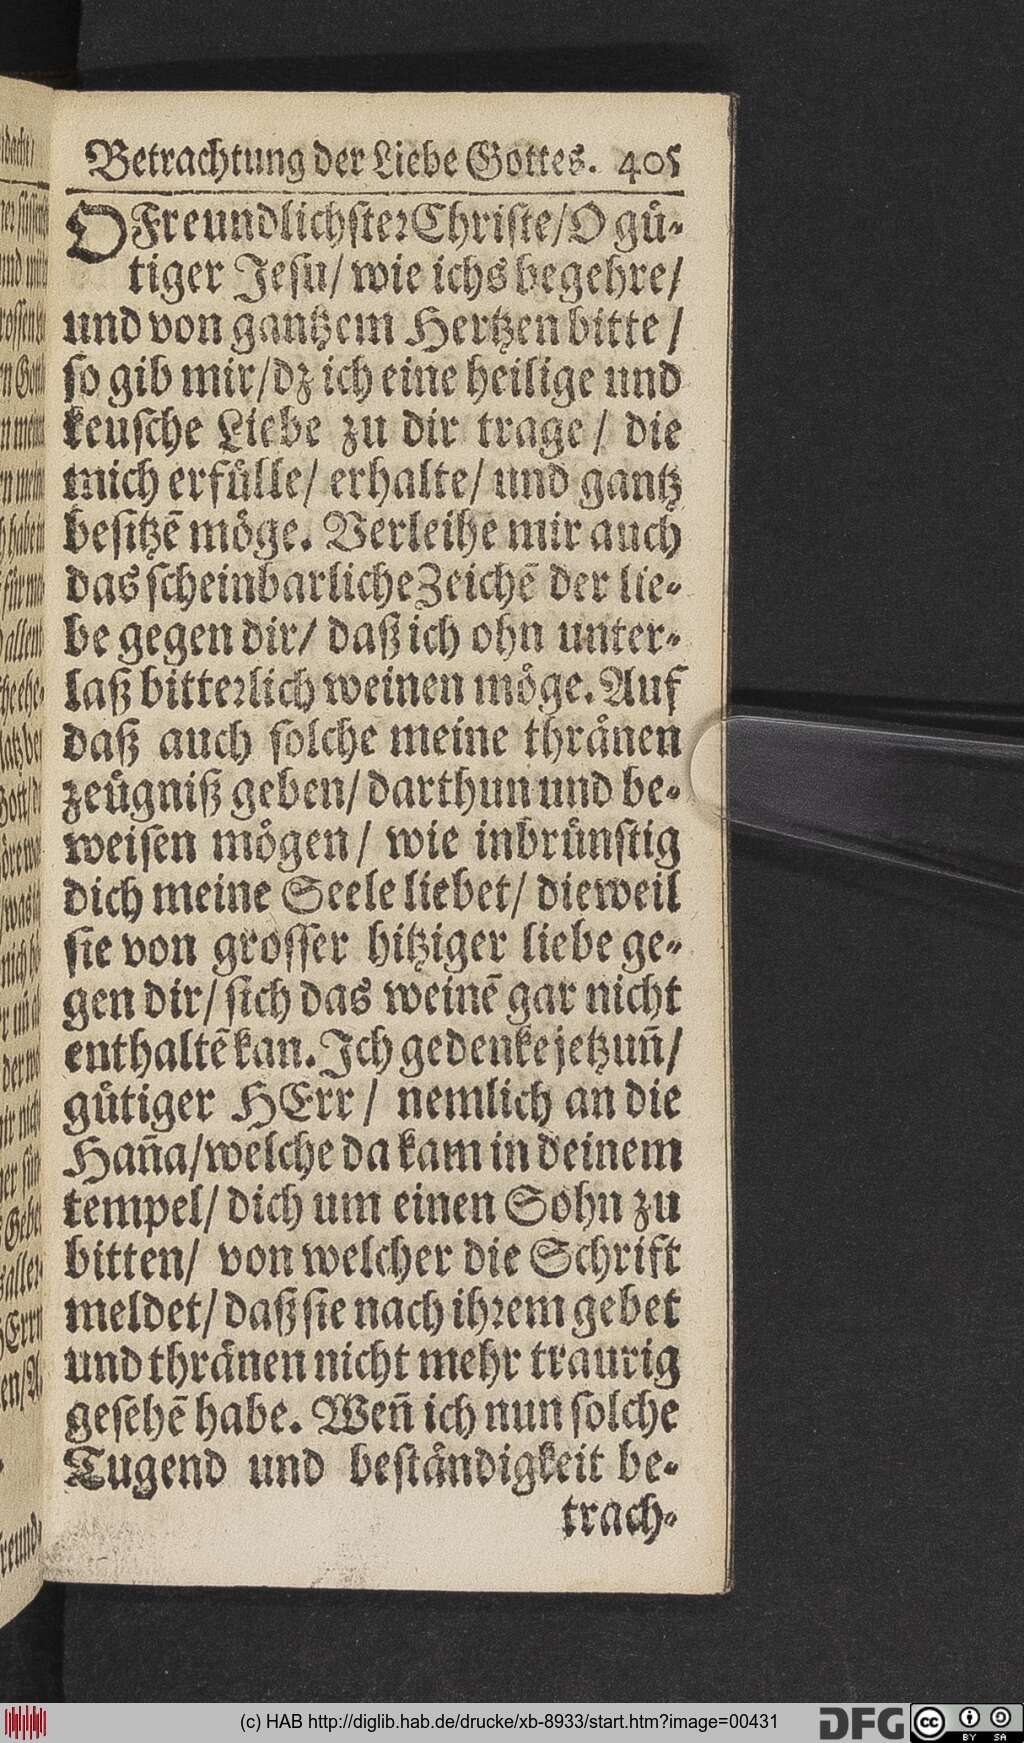 Betrachtung der Liebe Gottes. 405
O Freundlichster Christe/O guͤ-
tiger Jesu/ wie ichs begehre/
und von gantzem Hertzen bitte /
so gib mir/dz ich eine heilige und
keusche Liebe zu dir trage/ die
mich erfuͤlle/ erhalte/ und gantz
besitzẽ moͤge. Verleihe mir auch
das scheinbarliche Zeichẽ der lie-
be gegen dir/ daß ich ohn unter-
laß bitterlich weinen moͤge. Auf
daß auch solche meine thraͤnen
zeuͤgniß geben/ darthun und be-
weisen moͤgen/ wie inbruͤnstig
dich meine Seele liebet/ dieweil
sie von grosser hitziger liebe ge-
gen dir/ sich das weinẽ gar nicht
enthaltẽ kan. Ich gedenke jetzuñ/
guͤtiger HErr/ nemlich an die
Haña/welche da kam in deinem
tempel/ dich um einen Sohn zu
bitten/ von welcher die Schrift
meldet/ daß sie nach ihrem gebet
und thraͤnen nicht mehr traurig
gesehẽ habe. Weñ ich nun solche
Tugend und bestaͤndigkeit be-
trach-
(c) HAB http://diglib.hab.de/drucke/xb-8933/start.htm?image=00431
DFG
cc BY SA